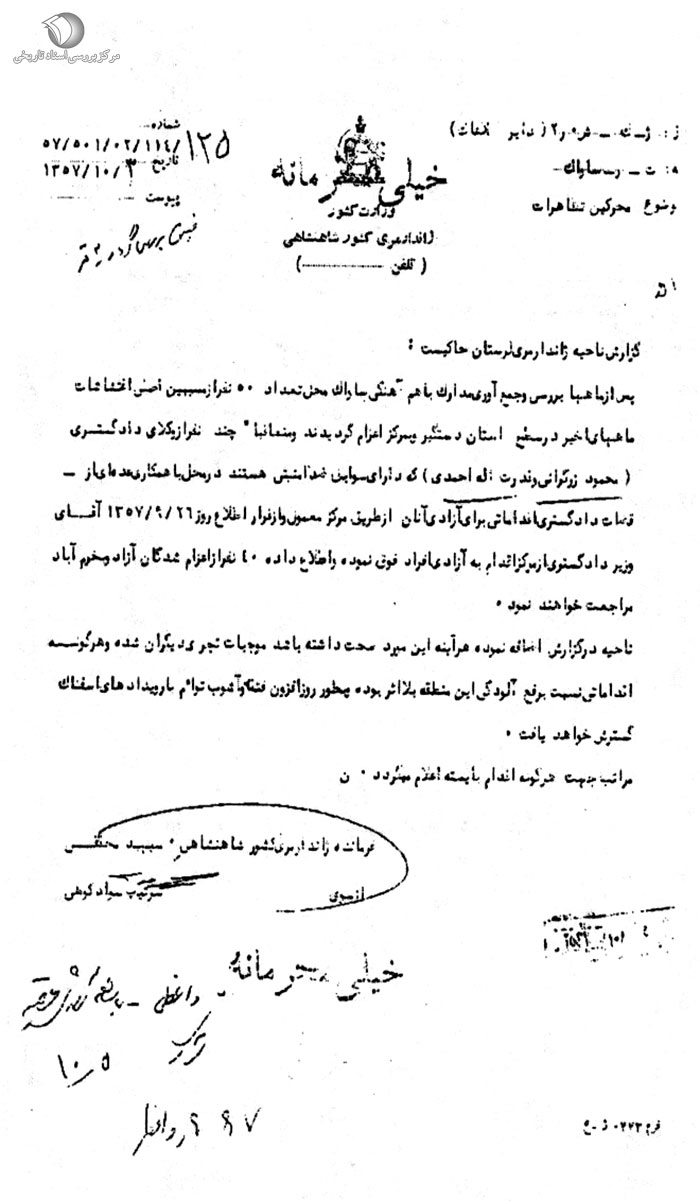 مرکز بررسی اسناد تاریخی
شماره
۵۷/۵۰۱/۰۲/۱۱۴/۱۲۵
تاریخ ۱۳۵۷/۱۰/۳
پیوست
خیلی محرمانه
وزارت کشور
ژاندارمری کشور شاهنشاهی
( تلفن )
موضوع محرکین تظاهرات
گزارش ناحیه ژاندارمری لرستان حاکیست :
پس از ماهها بررسی و جمع آوری مدارك با هم آهنگی ساواك محل تعداد ۵۰ نفر از مسببین اصلی اغتشاشات
ماههای اخیر در سطح استان دستگیر و بمرکز اعزام گردیدند و متعاقباً چند نفر از وکلای دادگستری
( محمود زرگرانی و ندرت اله احمدی ) که دارای سوابق ضد امنیتی هستند در محل با همکاری عده‌ای از ــ
قضات دادگستری اقداماتی برای آزادی آنان از طریق مرکز معمول و از قرار اطلاع روز ۱۳۵۷/۹/۲۶ آقای
وزیر دادگستری از مرکز اقدام به آزادی افراد فوق نموده و اطلاع داده ۴۰ نفر از اعزام شدگان آزاد و بخرم آباد
مراجعت خواهند نمود ۰
ناحیه در گزارش اضافه نموده هرآینه این مورد صحت داشته باشد موجبات تجری دیگران شده و هرگونه
اقداماتی نسبت برفع آلودگی این منطقه بلااثر بوده و بطور روزافزون فتنه و آشوب توام با رویدادهای اسفناك
گسترش خواهد یافت ۰
مراتب جهت هرگونه اقدام بایسته اعلام میگردد ۰ ن
فرمانده ژاندارمری کشور شاهنشاهی ۰ سپهبد محققی
از سوی
سرتیپ سوادکوهی
خیلی محرمانه
۱۰/۵
۶۶۷